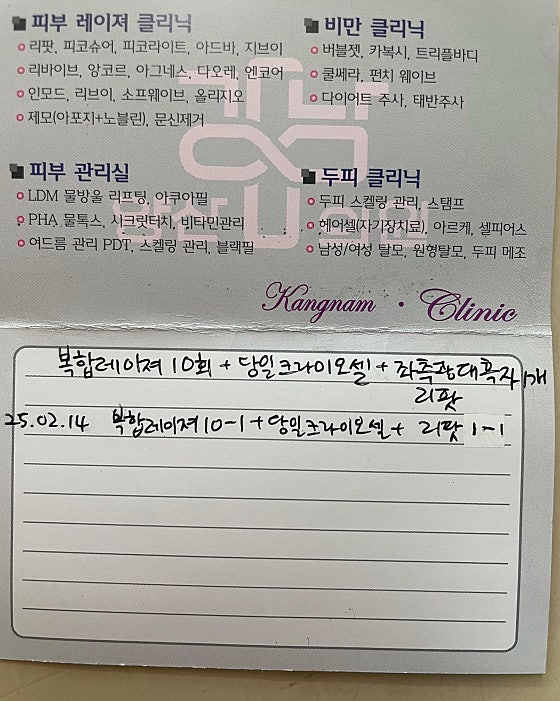 피부 레이져 클리닉
리팟, 피코슈어, 피코라이트, 아드바, 지브이
리바이브, 앙코르, 아그네스, 다오레, 엔코어
인모드, 리브이, 소프웨이브, 올리지오
제모(아포지+노블린), 문신제거
비만 클리닉
버블젯, 카복시, 트리플바디
쿨쎄라, 펀치 웨이브
다이어트 주사, 태반주사
피부 관리실
LDM 물방울 리프팅, 아쿠아필
PHA 물톡스, 시크릿터치, 비타민관리
여드름 관리 PDT, 스켈링 관리, 블랙필
두피 클리닉
두피 스켈링 관리, 스탬프
헤어셀(자기장치료), 아르케, 셀피어스
남성/여성 탈모, 원형탈모, 두피 메조
Kangnam · Clinic
복합레이져 10회 + 당일크라이오셀 + 좌측팔대흑자 1개
리팟
25.02.14 복합레이져 10-1 + 당일크라이오셀 + 리팟 1-1